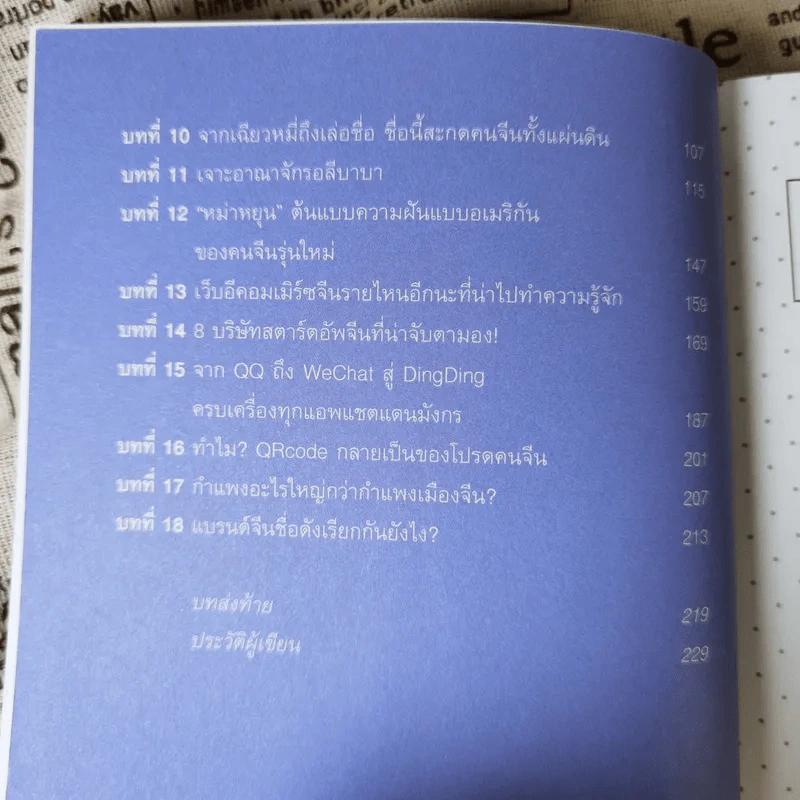 บทที่ 10 จากเฉียวหมี่ถึงเล่อชื่อ ชื่อนี้สะกดคนจีนทั้งแผ่นดิน 107
บทที่ 11 เจาะอาณาจักรอลีบาบา 115
บทที่ 12 “หม่าหยุน” ต้นแบบความฝันแบบอเมริกัน
ของคนจีนรุ่นใหม่ 147
บทที่ 13 เว็บอีคอมเมิร์ซจีนรายไหนอีกนะที่น่าไปทำความรู้จัก 159
บทที่ 14 8 บริษัทสตาร์ตอัพจีนที่น่าจับตามอง! 169
บทที่ 15 จาก QQ ถึง WeChat สู่ DingDing
ครบเครื่องทุกแอพแชตแดนมังกร 187
บทที่ 16 ทำไม? QRcode กลายเป็นของโปรดคนจีน 201
บทที่ 17 กำแพงอะไรใหญ่กว่ากำแพงเมืองจีน? 207
บทที่ 18 แบรนด์จีนชื่อดังเรียกกันยังไง? 213
บทส่งท้าย 219
ประวัติผู้เขียน 229